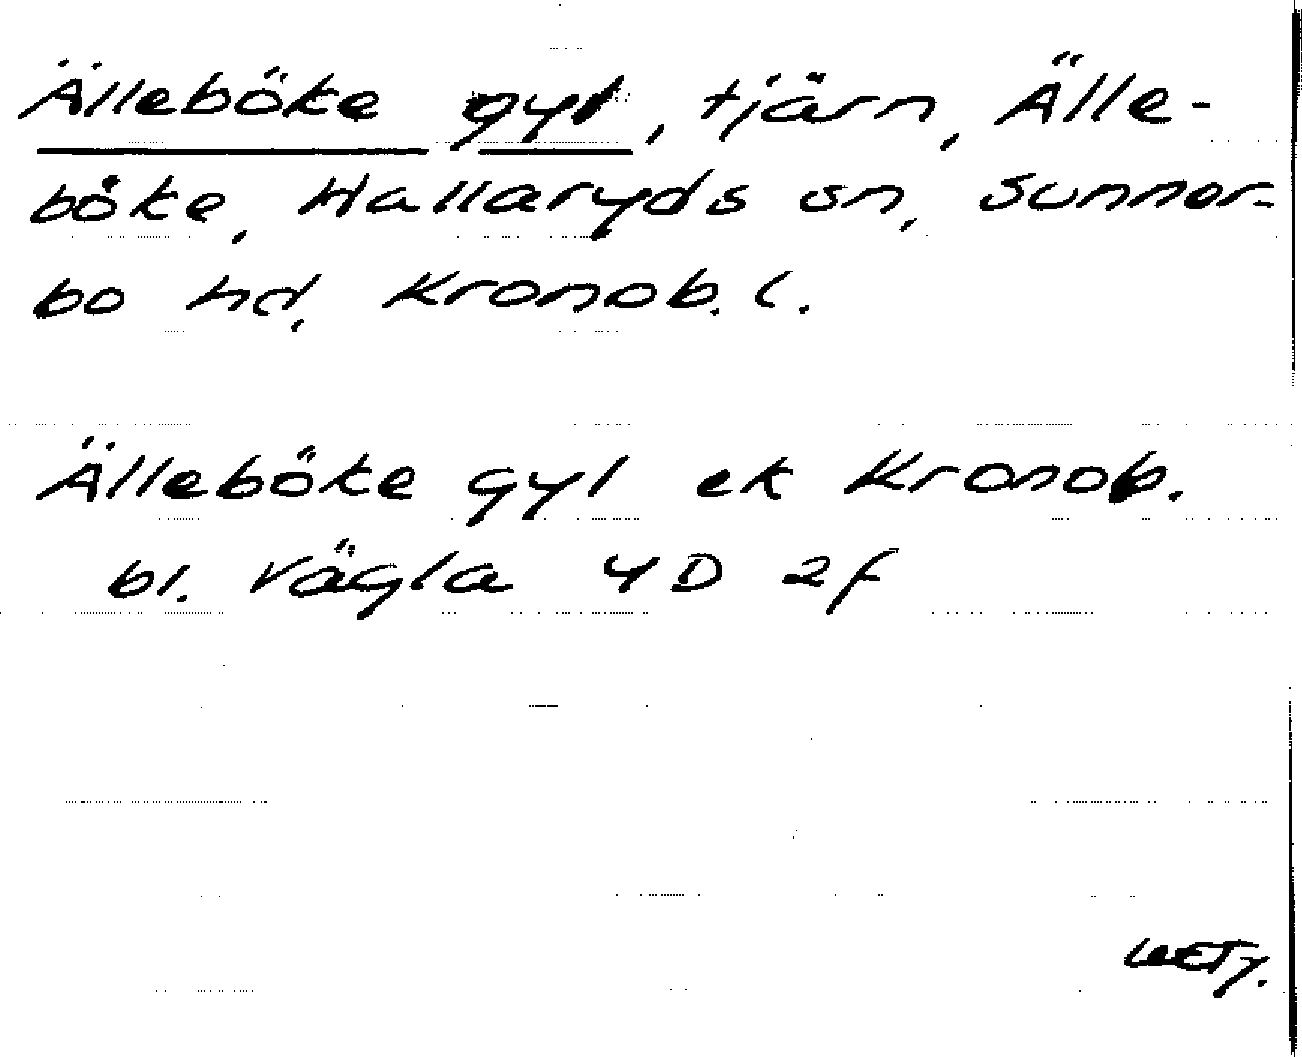 Älleböke gyl, tjärn, Älle-
böke, Hallaryds sn, Sunner-
bo hd, Kronob. l.
Älleböke gyl ek Kronob.
bl. Vägla 4D 2f